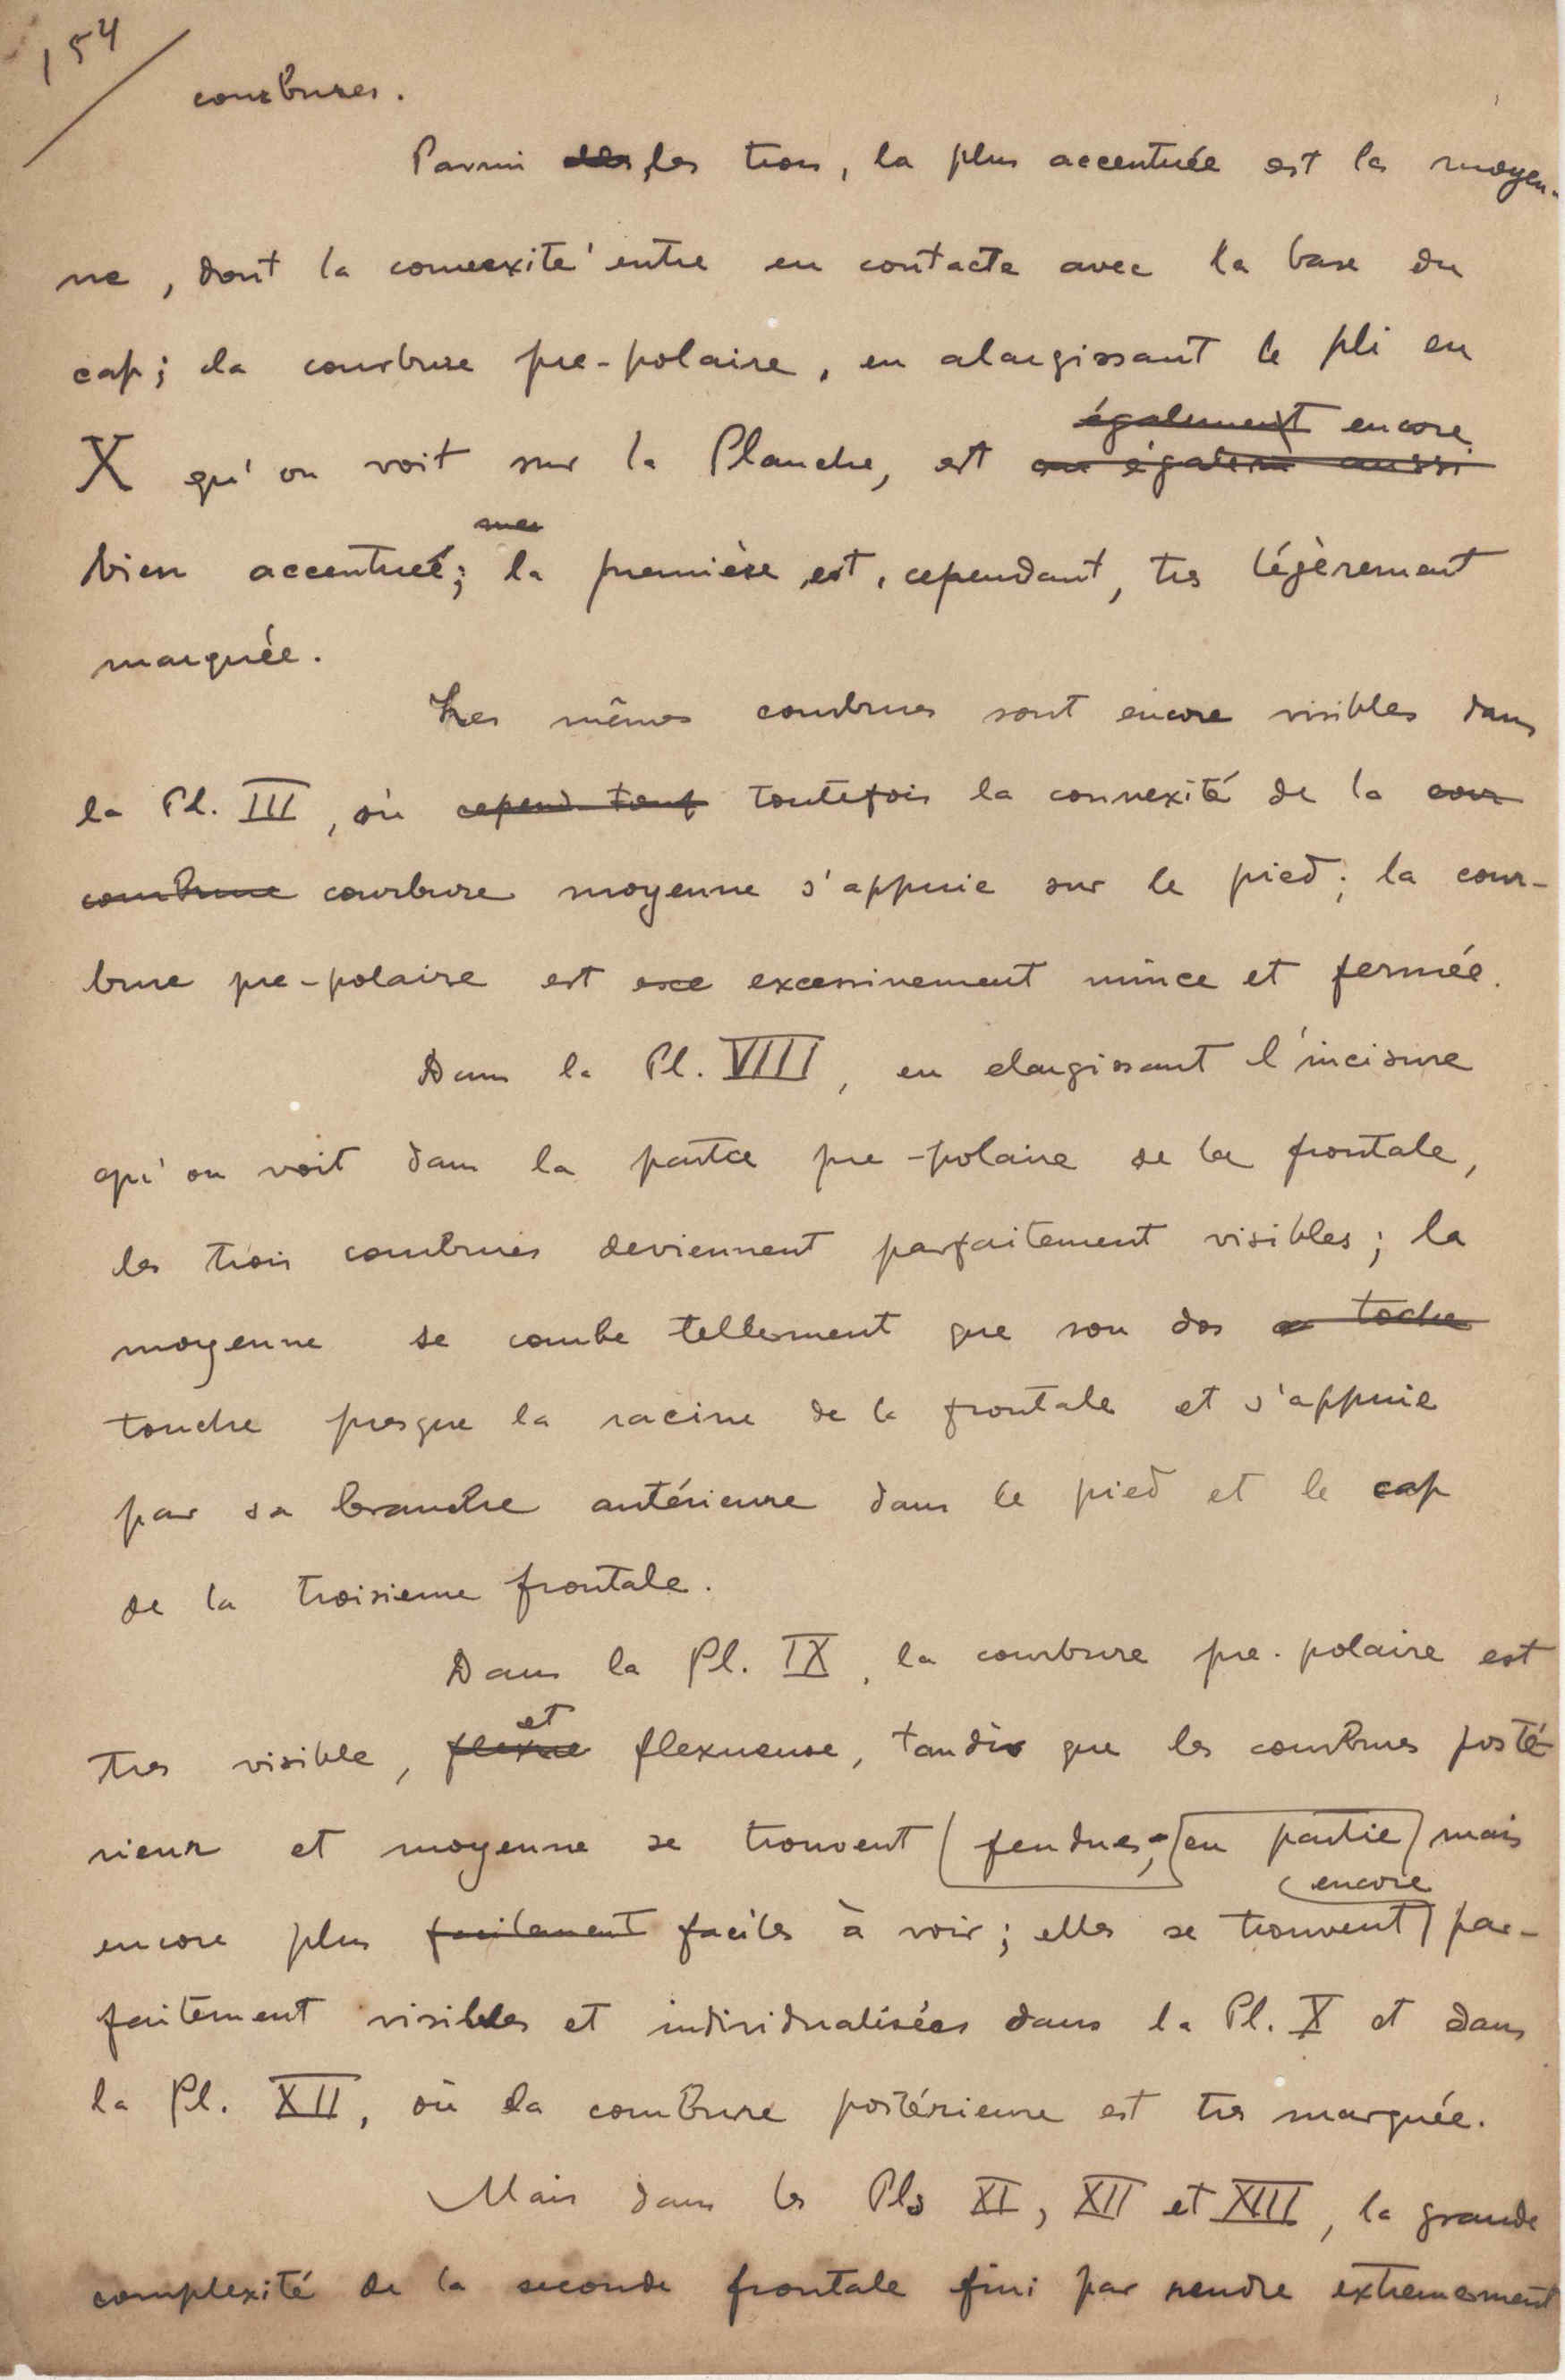 154
courbures.
Parmi les trois, la plus accentuée est la moyen-
ne, dont la convexité entre en contacte avec la base du
cap; la courbure pre-polaire, en alargissant le pli en
également encore
X qu'on voit sur la Planche, est ou égalem aussi
bien accentuée; la première est, cependant, tres légèrement
marquée.
Les mêmes courbures sont encore visibles dans
la Pl. III, où cepend. touf toutefois la connexité de la cour
courbure courbure moyenne s'appuie sur le pied; la cour-
bure pre-polaire est exce excessivement mince et fermée.
Dans la Pl. VIII, en elargissant l'incisure
qu'on voit dans la partie pre-polaire de la frontale,
les trois courbures deviennent parfaitement visibles; la
moyenne se courbe tellement que son dos toche
touche presque la racine de la frontale et s'appuie
par sa branche antérieure dans le pied et le cap
de la troisieme frontale.
Dans la Pl. IX, la courbure pre-polaire est
et
tres visible, flexue flexueuse, tandis que les courbures posté
rieur et moyenne se trouvent (fendues, en partie) mais
encore
encore plus facilement faciles à voir; elles se trouvent par-
faitement visibles et individualisées dans la Pl. X et dans
la Pl. XII, où la courbure postérieure est tres marquée.
Mais dans les Pls XI, XII et XIII, la grande
complexité de la seconde frontale fini par rendre extremement